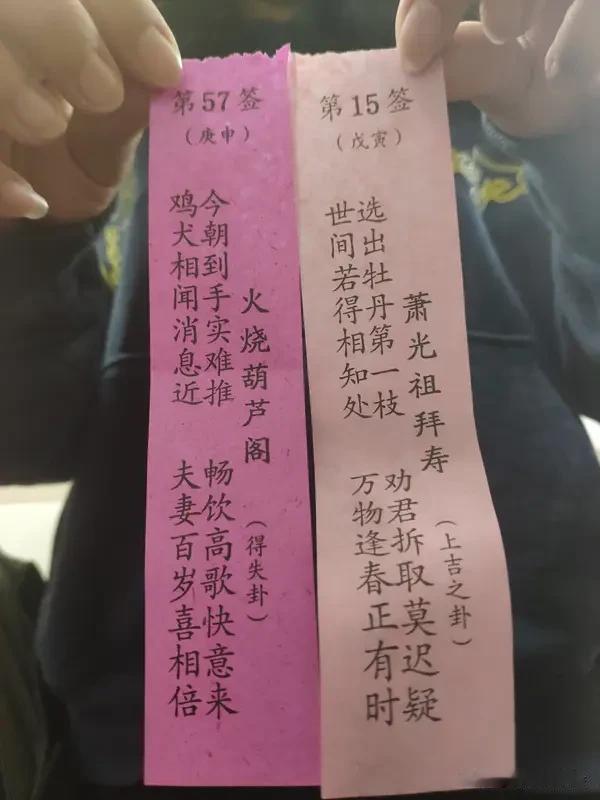 第57签
（庚申）
火烧葫芦阁
（得失卦）
今朝到手实难推
畅饮高歌快意来
鸡犬相闻消息近
夫妻百岁喜相倍
第15签
（戊寅）
萧光祖拜寿
（上吉之卦）
选出牡丹第一枝
劝君拆取莫迟疑
世间若得相知处
万物逢春正有时